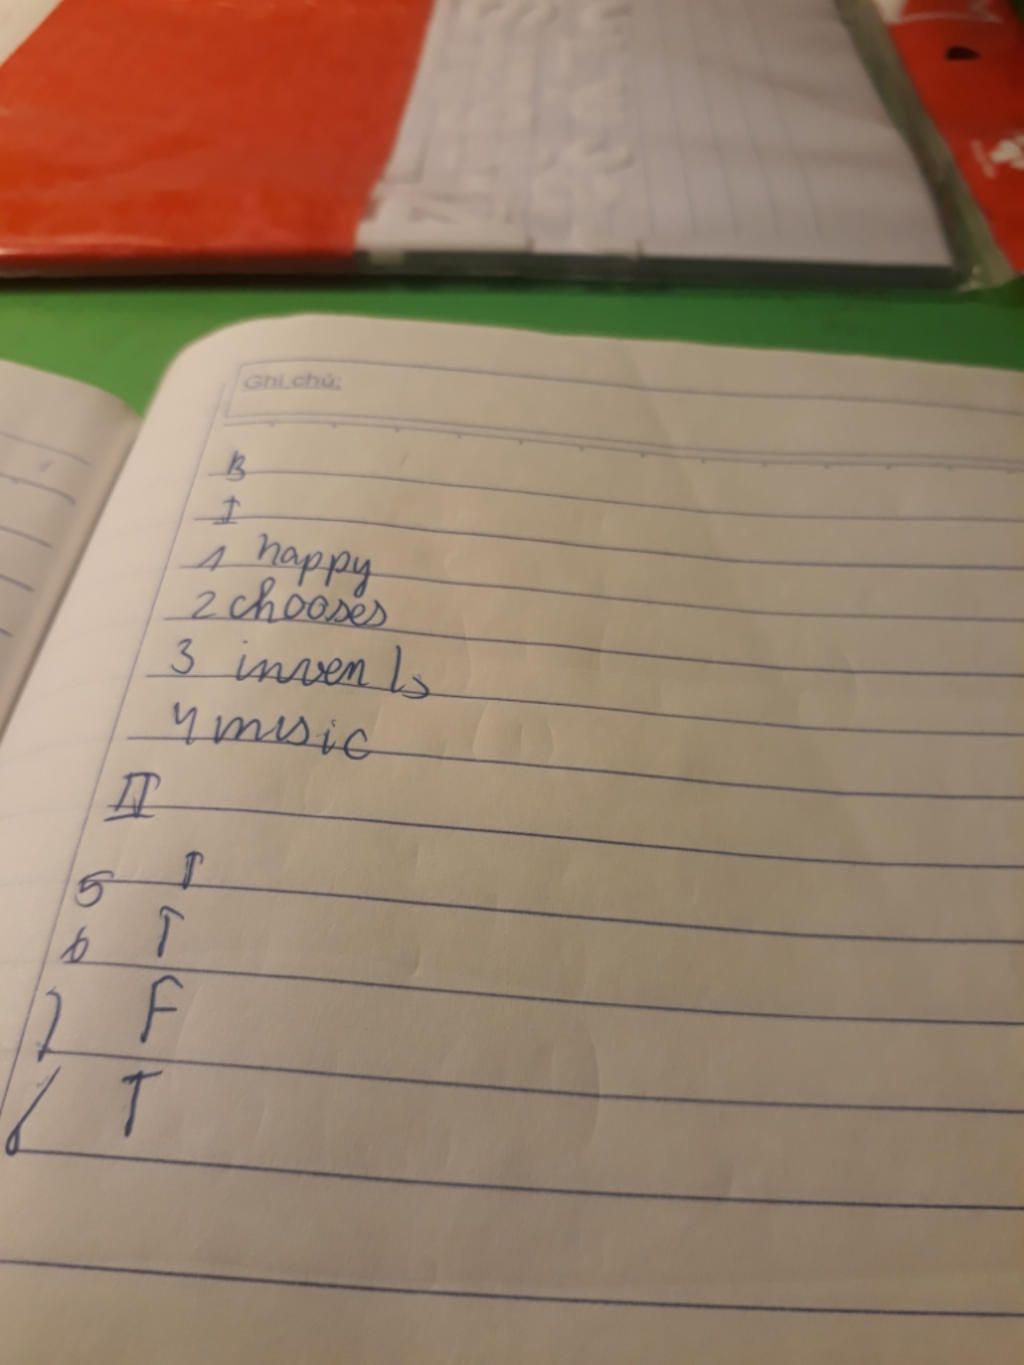 Ghi chú:
B
I
1 happy
2 chooses
3 invents
4 music
II
5 T
6 T
7 F
8 T